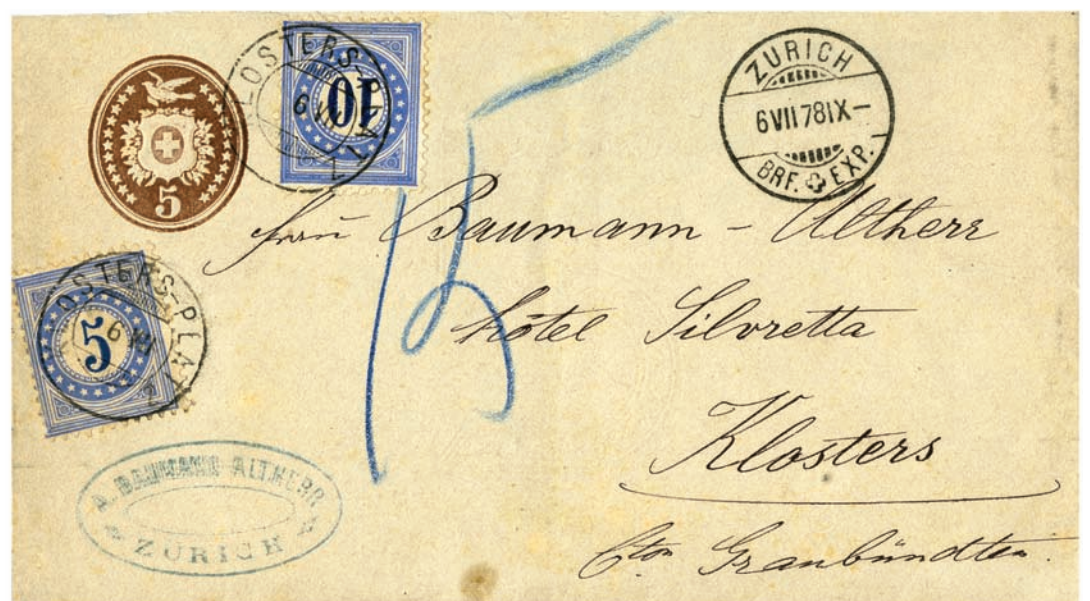 5
LOSTERS-PLATZ
6 VII
10
15
ZÜRICH
6 VII 78 IX-
BRF. EXP.
Frau Baumann-Altherr
Hôtel Silvretta
Klosters
Cton Graubündten.
5
LOSTERS-PLATZ
6 VII
A. BAUMANN ALTHERR
ZÜRICH